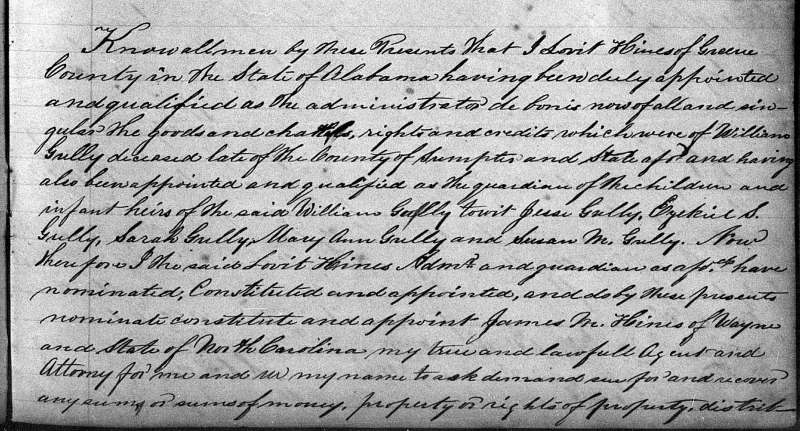 Know all men by these Presents that I Lovit Hines of Greene
County in the State of Alabama having been duly appointed
and qualified as the administrator de bonis now of all and sin-
gular the goods and chattels, rights and credits which were of William
Gully deceased late of the County of Sumpter and State afsd and having
also been appointed and qualified as the guardian of the children and
infant heirs of the said William Gully towit Jesse Gully, Ezekiel S.
Gully, Sarah Gully, Mary Ann Gully and Susan M. Gully. Now
therefore I the said Lovit Hines Admr. and guardian as afsd. have
nominated, Constituted and appointed, and do by these presents
nominate constitute and appoint James M. Hines of Wayne
and State of North Carolina my true and lawfull Agent and
Attorny for me and in my name to ask demand sue for and recover
any sums or sums of money, property or rights of property, distrib-